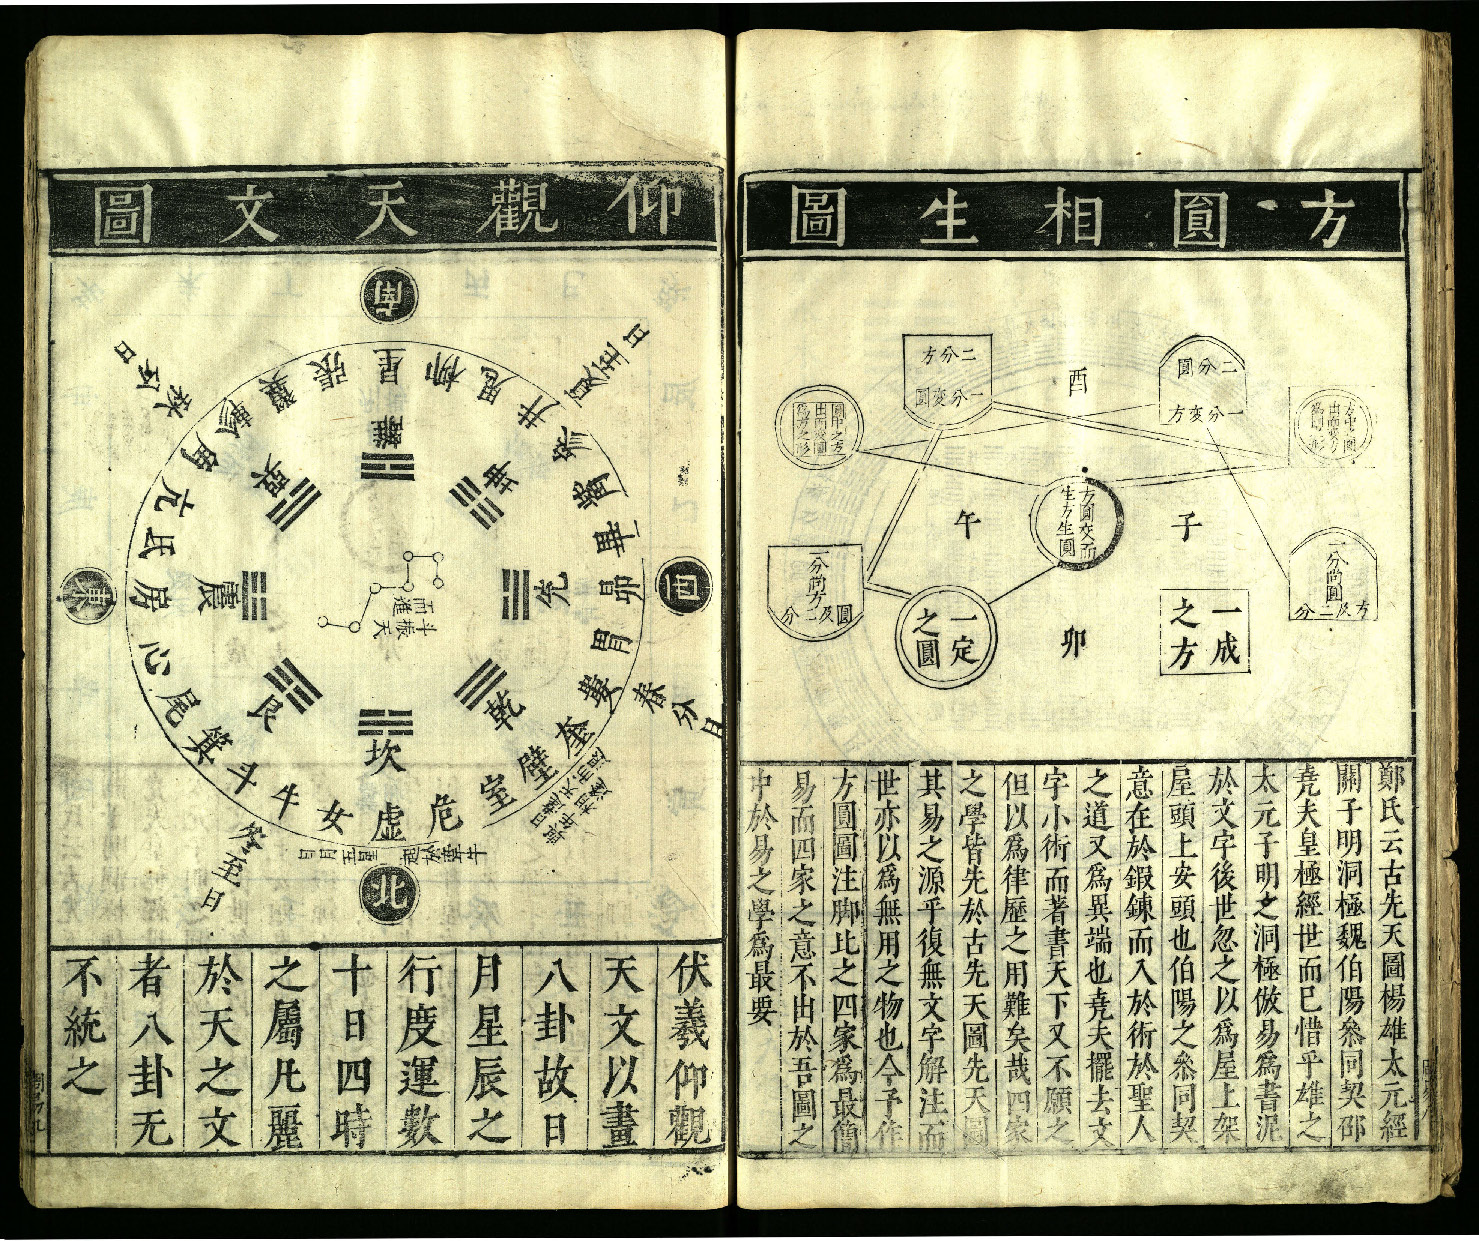 方圓相生圖
二分方
一分變圓
二分圓
一分變方
酉
子
午
卯
方圓交而
生方生圓
一分尚方二
圓及二分
一分尚圓
方及二分
一定
之圓
一成
之方
鄭氏云古先天圖楊雄太元經
關子明洞極魏伯陽叅同契邵
堯夫皇極經世而已惜乎雄之
太元子明之洞極倣易爲書泥
於文字後世忽之以爲屋上架
屋頭上安頭也伯陽之叅同契
意在於鍜鍊而入於術於聖人
之道又爲異端也堯夫擺去文
字小術而著書天下又不願之
但以爲律歷之用難矣哉四家
之學皆先於古先天圖先天圖
其易之源乎復無文字解注而
世亦以爲無用之物也今予作
方圓圖注脚比之四家爲最簡
易而四家之意不出於吾圖之
中於易之學爲最要
仰觀天文圖
南
西
北
東
夏至日
秋分日
冬至日
春分日
角亢氐房心尾箕
斗牛女虛危室壁
奎婁胃昴畢觜參
井鬼柳星張翼軫
離
坤
兌
乾
坎
艮
震
巽
伏羲仰觀
天文以畫
八卦故日
月星辰之
行度運數
十日四時
之屬凡麗
於天之文
者八卦无
不統之